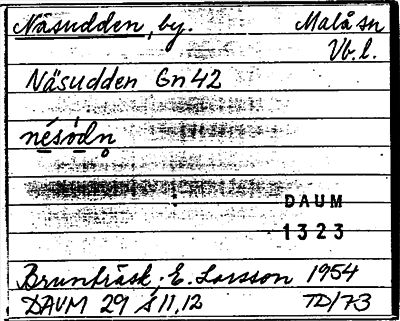 Näsudden, by. Malå sn
Vb. l.
Näsudden Gn 42
nésòdn̥
DAUM
1323
Brunträsk, E. Larsson 1954
DAUM 29 s 11, 12 TD/73